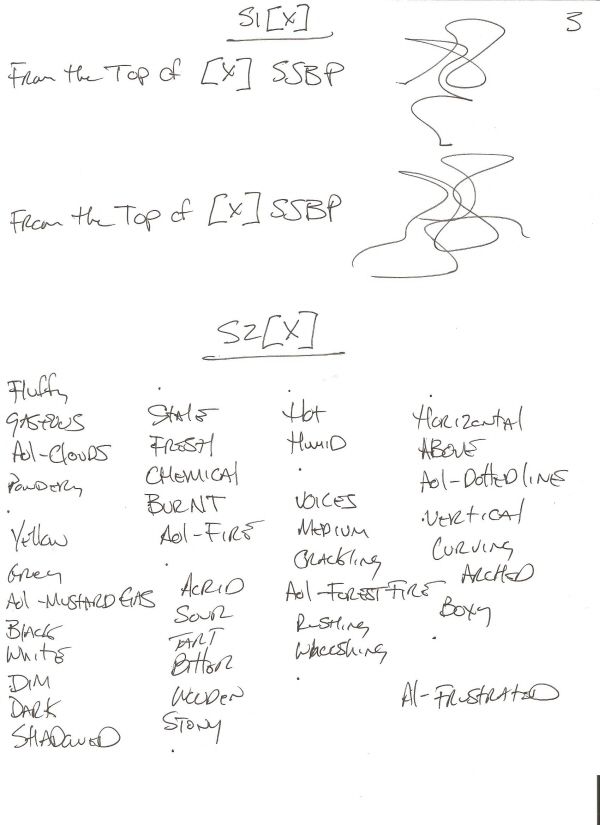 S1[X]
3
From the Top of [X] SSBP
From the Top of [X] SSBP
S2[X]
Fluffy
GASEOUS
Aol-Clouds
Powdery
.
Yellow
Grey
Aol-MUSTARD GAS
Black
White
.DIM
DARK
SHADOWED
.
STALE
FRESH
CHEMICAL
BURNT
Aol-FIRE
.
ACRID
SOUR
TART
BITTER
WOODEN
STONY
.
.
Hot
HUMID
.
VOICES
MEDIUM
CRACKLING
Aol-FOREST FIRE
RUSHING
Whooshing
.
.
HORIZONTAL
ABOVE
Aol-DOTTED LINE
.VERTICAL
CURVING
ARCHED
BOXY
.
AI-FRUSTRATED